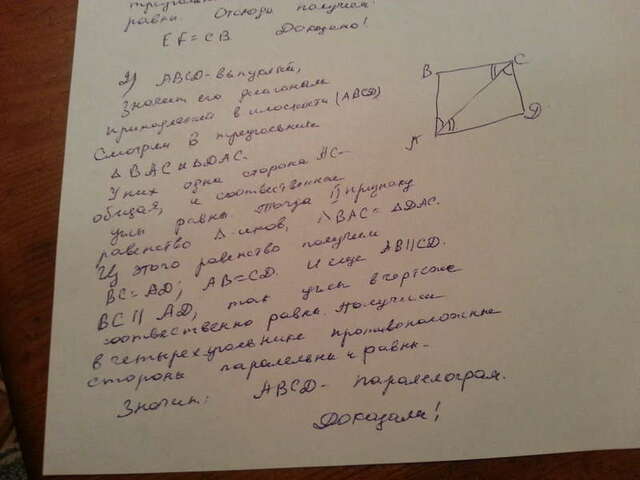 равны. Отсюда получим:
EF=CB. Доказано!
2) ABCD-выпуклый,
Значит его диагонали
принадлежат в плоскости (ABCD)
Смотрим в треугольники
△ BAC и △DAC.
У них одна сторона AC-
общая, и соотвественные
углы равны. Тогда 1) признаку
равенство △-иков, △BAC = △DAC.
Из этого равенство получим
BC=AD; AB=CD. И еще AB||CD.
BC || AD, так углы в чертеже
соотвественно равны. Получим
в четырехугольнике противоположные
стороны паралельны и равны.
Значит: ABCD- паралелограм.
Доказали!
B
C
A
D